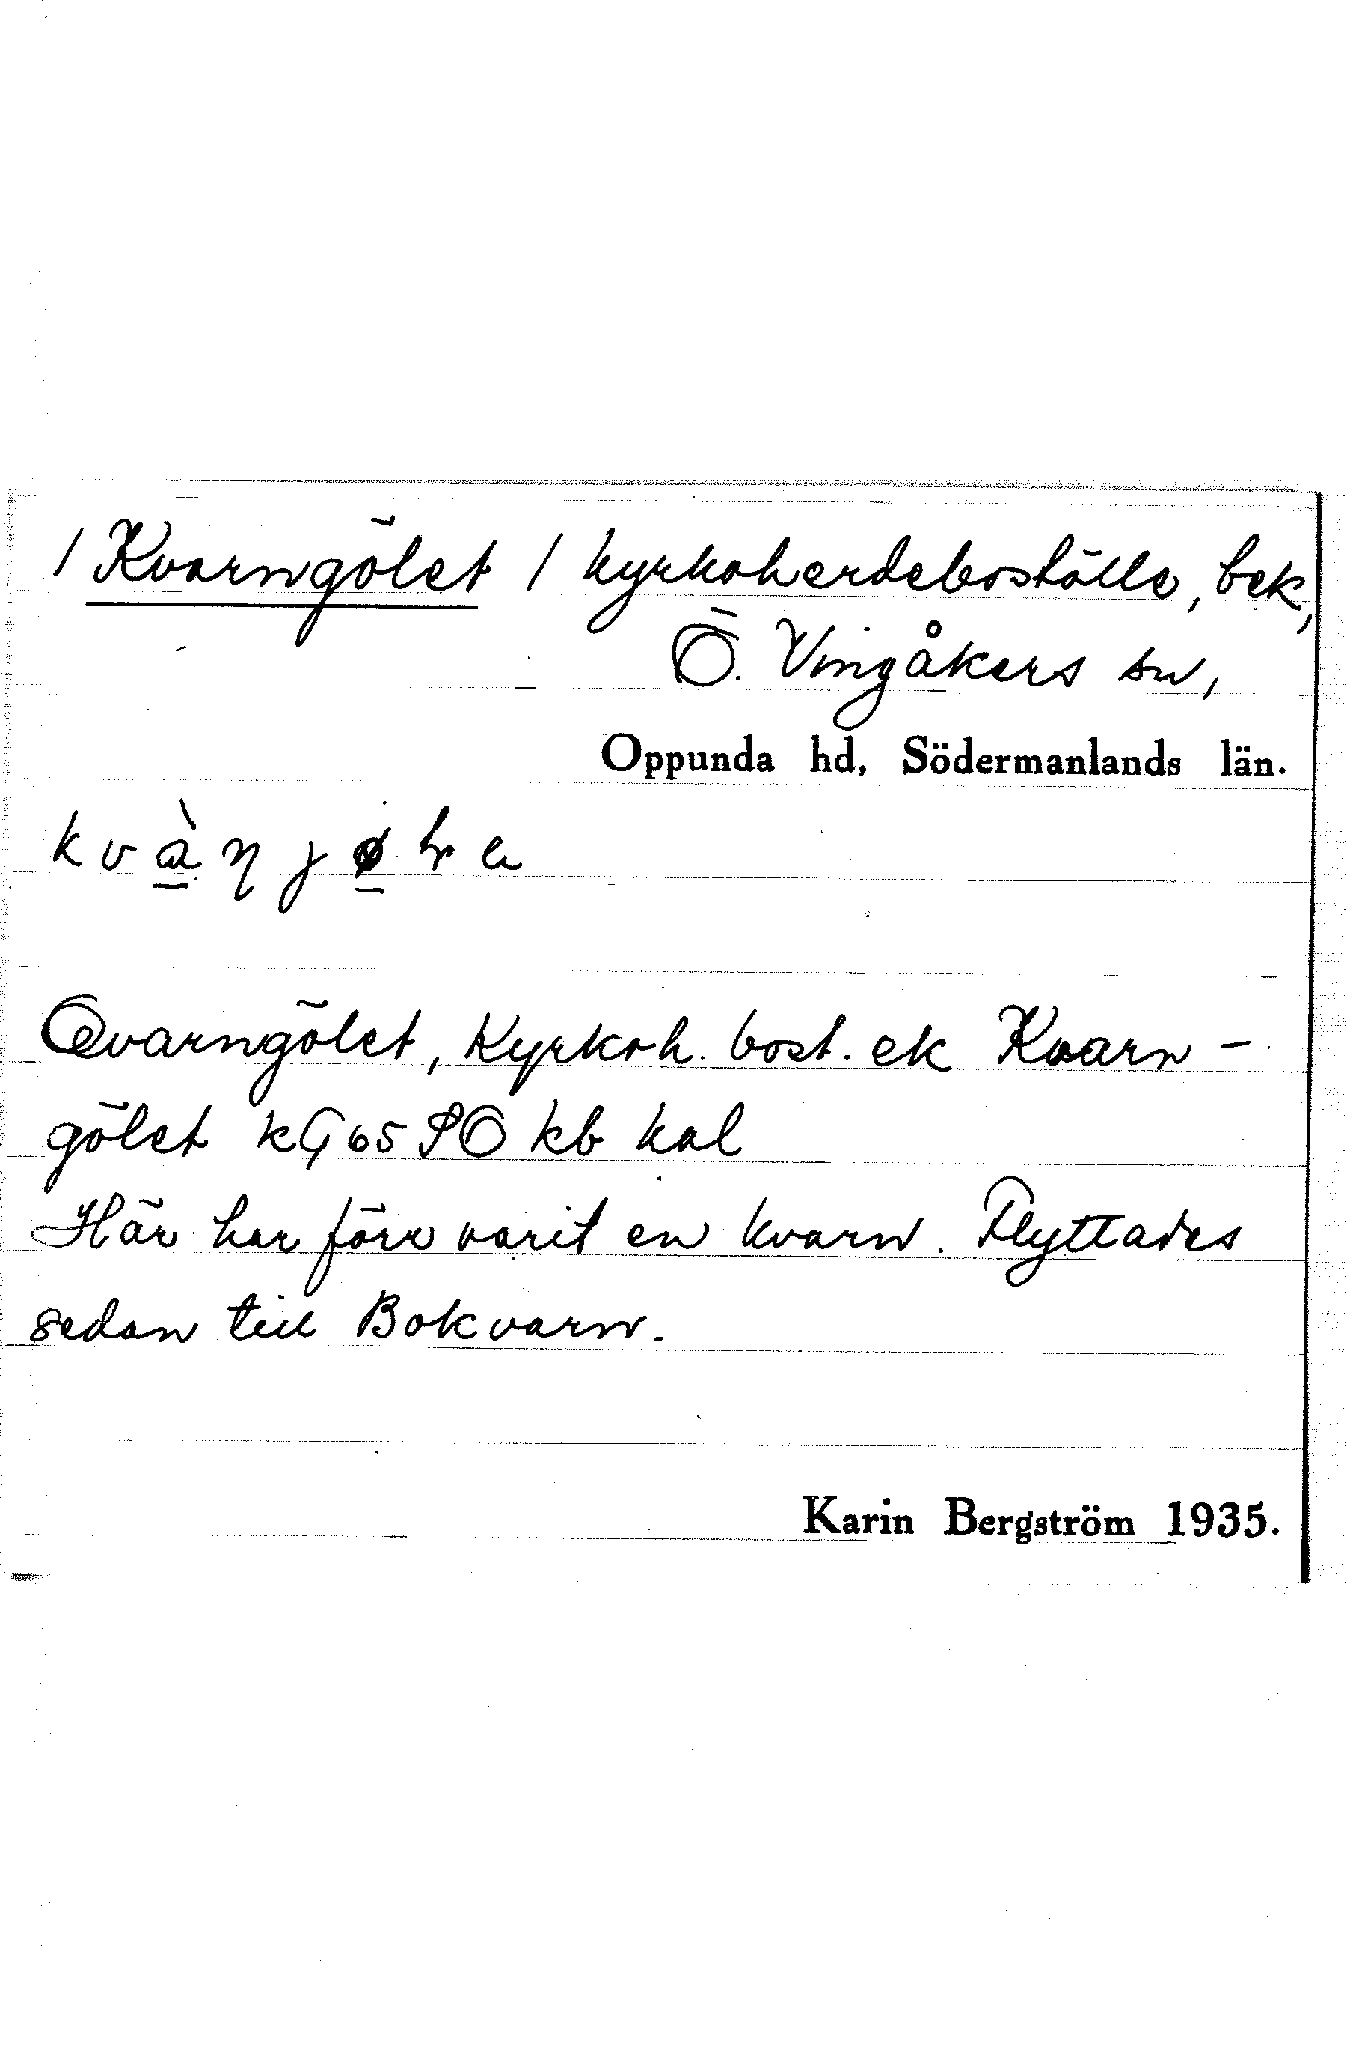 / Kvarngölet / kyrkoherdeboställe, bek,
Ö. Vingåkers sn,
Oppunda hd, Södermanlands län.
Qvarngölet, Kyrkoh. bost. ek Kvarn-
gölet kG65 SO kb kal
Här har förr varit en kvarn. Flyttades
sedan till Bokvarn.
Karin Bergström 1935.